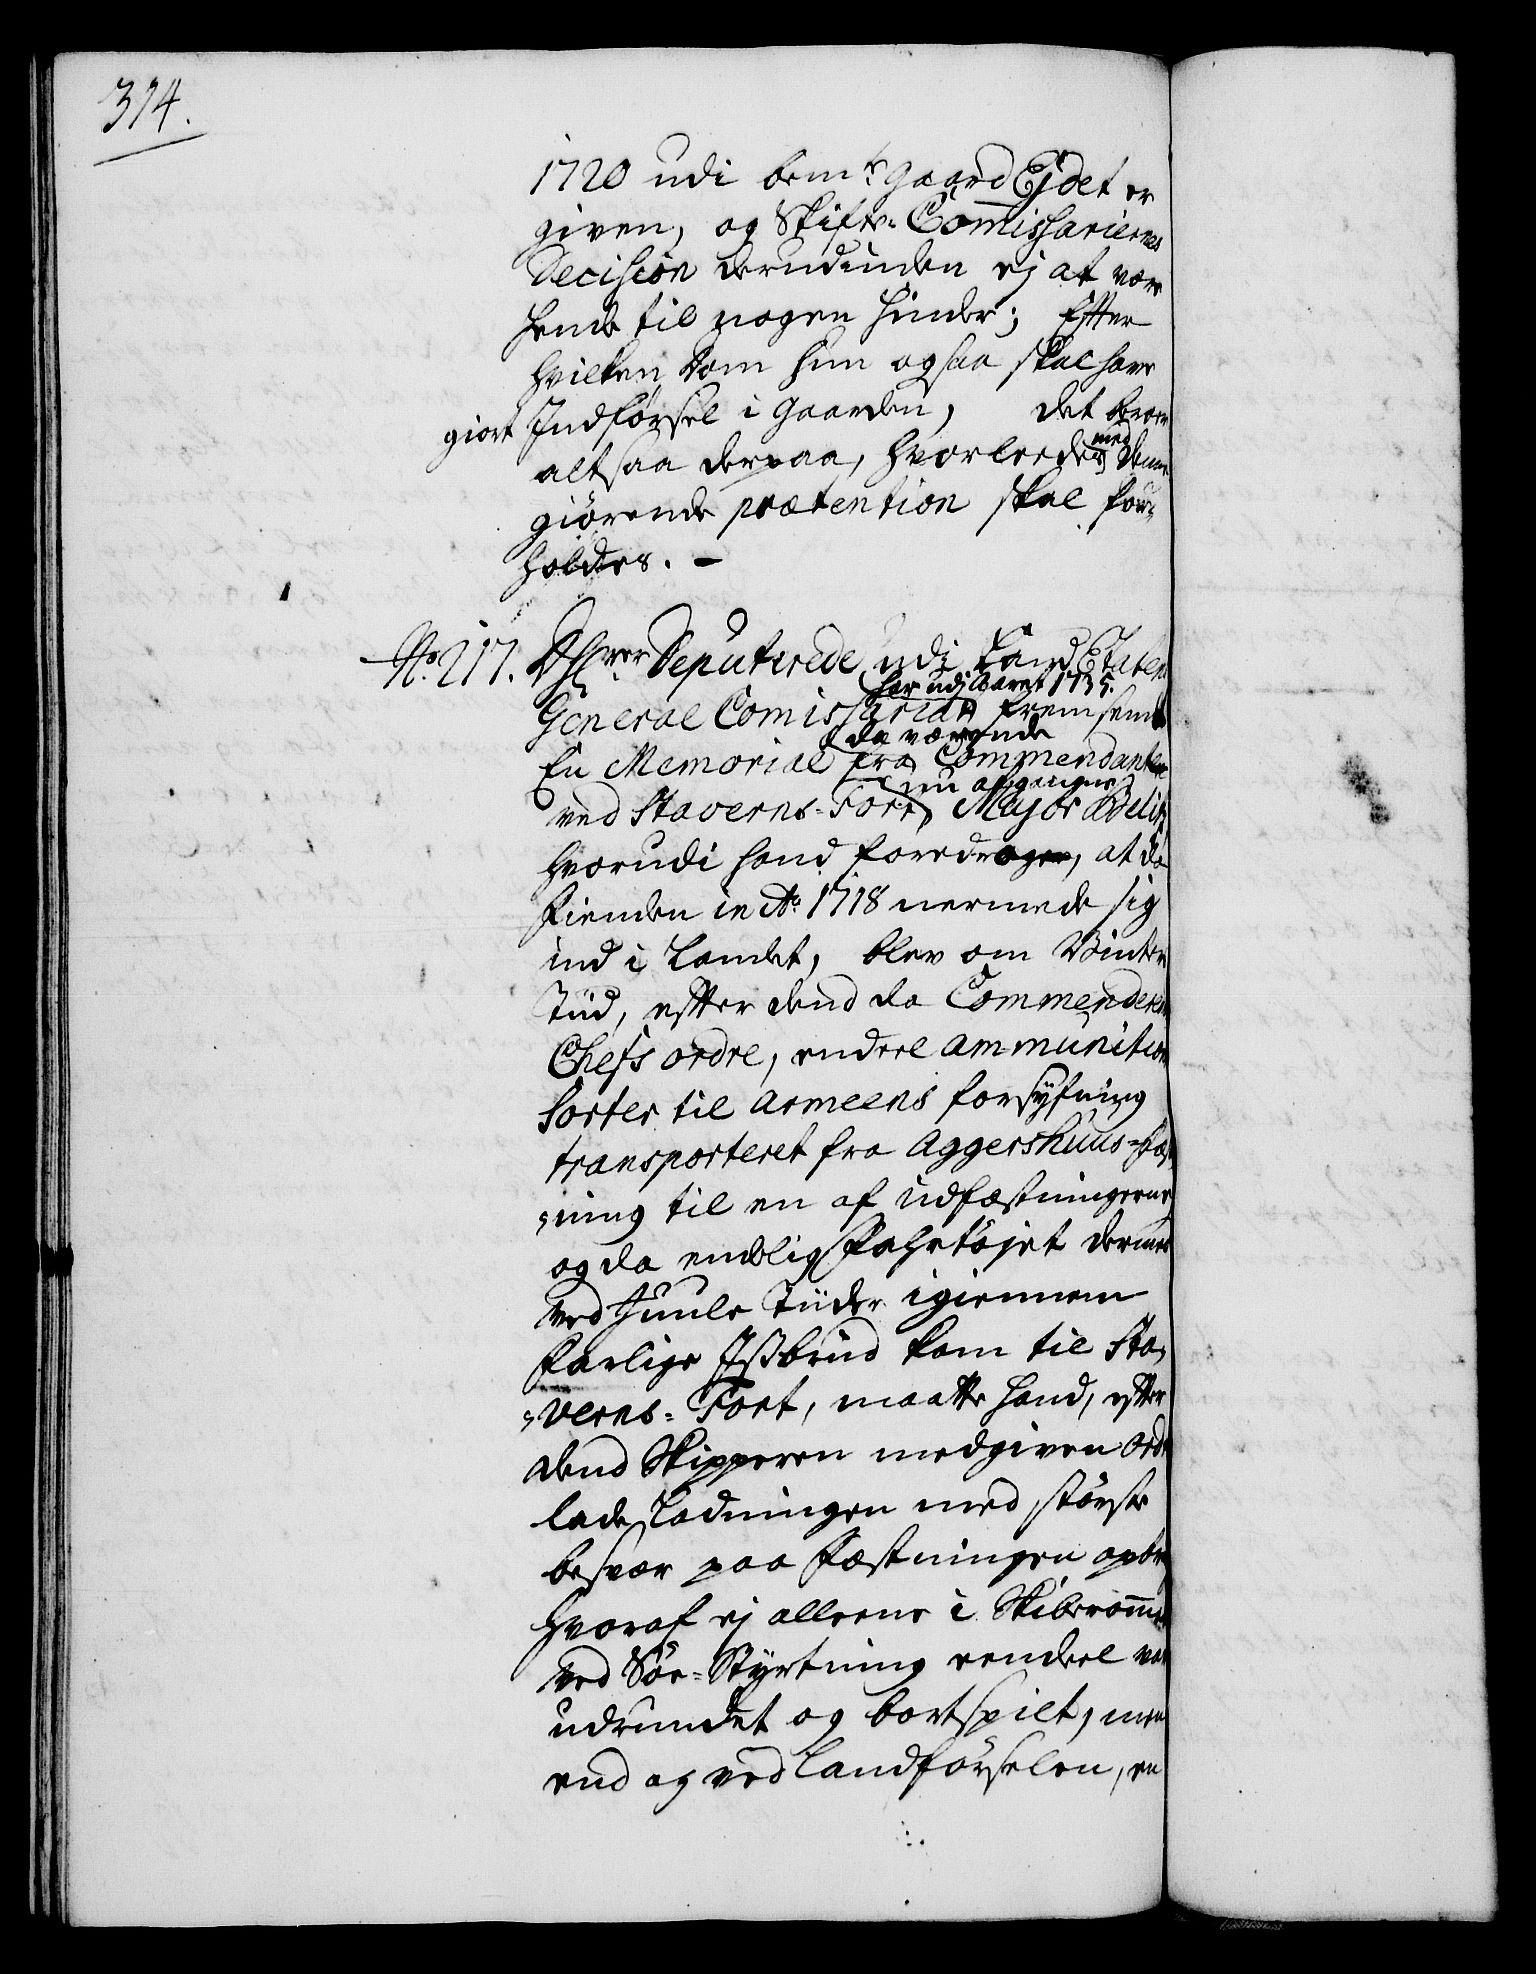 314.
1720 udi bemte gaard Ejdet er
given, og Skifte-Commissariernes
Decision derudinden ej at være
hende til nogen hinder; Efter
hvilken Dom hun ogsaa skal have
giort Indførsel i gaarden, det beroer
altsaa derpaa, hvorleedes med denne
giørende prætention skal for-
holdes. -
No. 217. Dhrrer Deputerede udi Land Etatens
har udj Aaret 1735.
General Comissariat fremsendt
da værende
En Memorial fra Commendanten
nu afgangne
ved Staverns-Fort, Major
hvorudi hand foredrager, at da
Fienden in Ao. 1718 nermede sig
ind i Landet, blev om Vinter
Tiid, efter dend da Commenderende
Chefs ordre, endeel ammunition
Sorter til Armeens forsyfning
transporteret fra Aggershuus-Fæst-
-ning til en af udfæstningerne
og da endelig Fahrtøjet dermed
ved Juule Tiider igiennem
farlige Jßbrud kom til Sta-
-verns-Fort, maatte hand, efter
dend Skipperen medgiven Ordre
lade Ladningen med største
besvær paa Fæstningen opbringe
hvoraf ej alleene i Skibsrommet
ved Søe-Styrtning eendeel var
udrundet og bortspilt, men
end og ved Landførselen, en